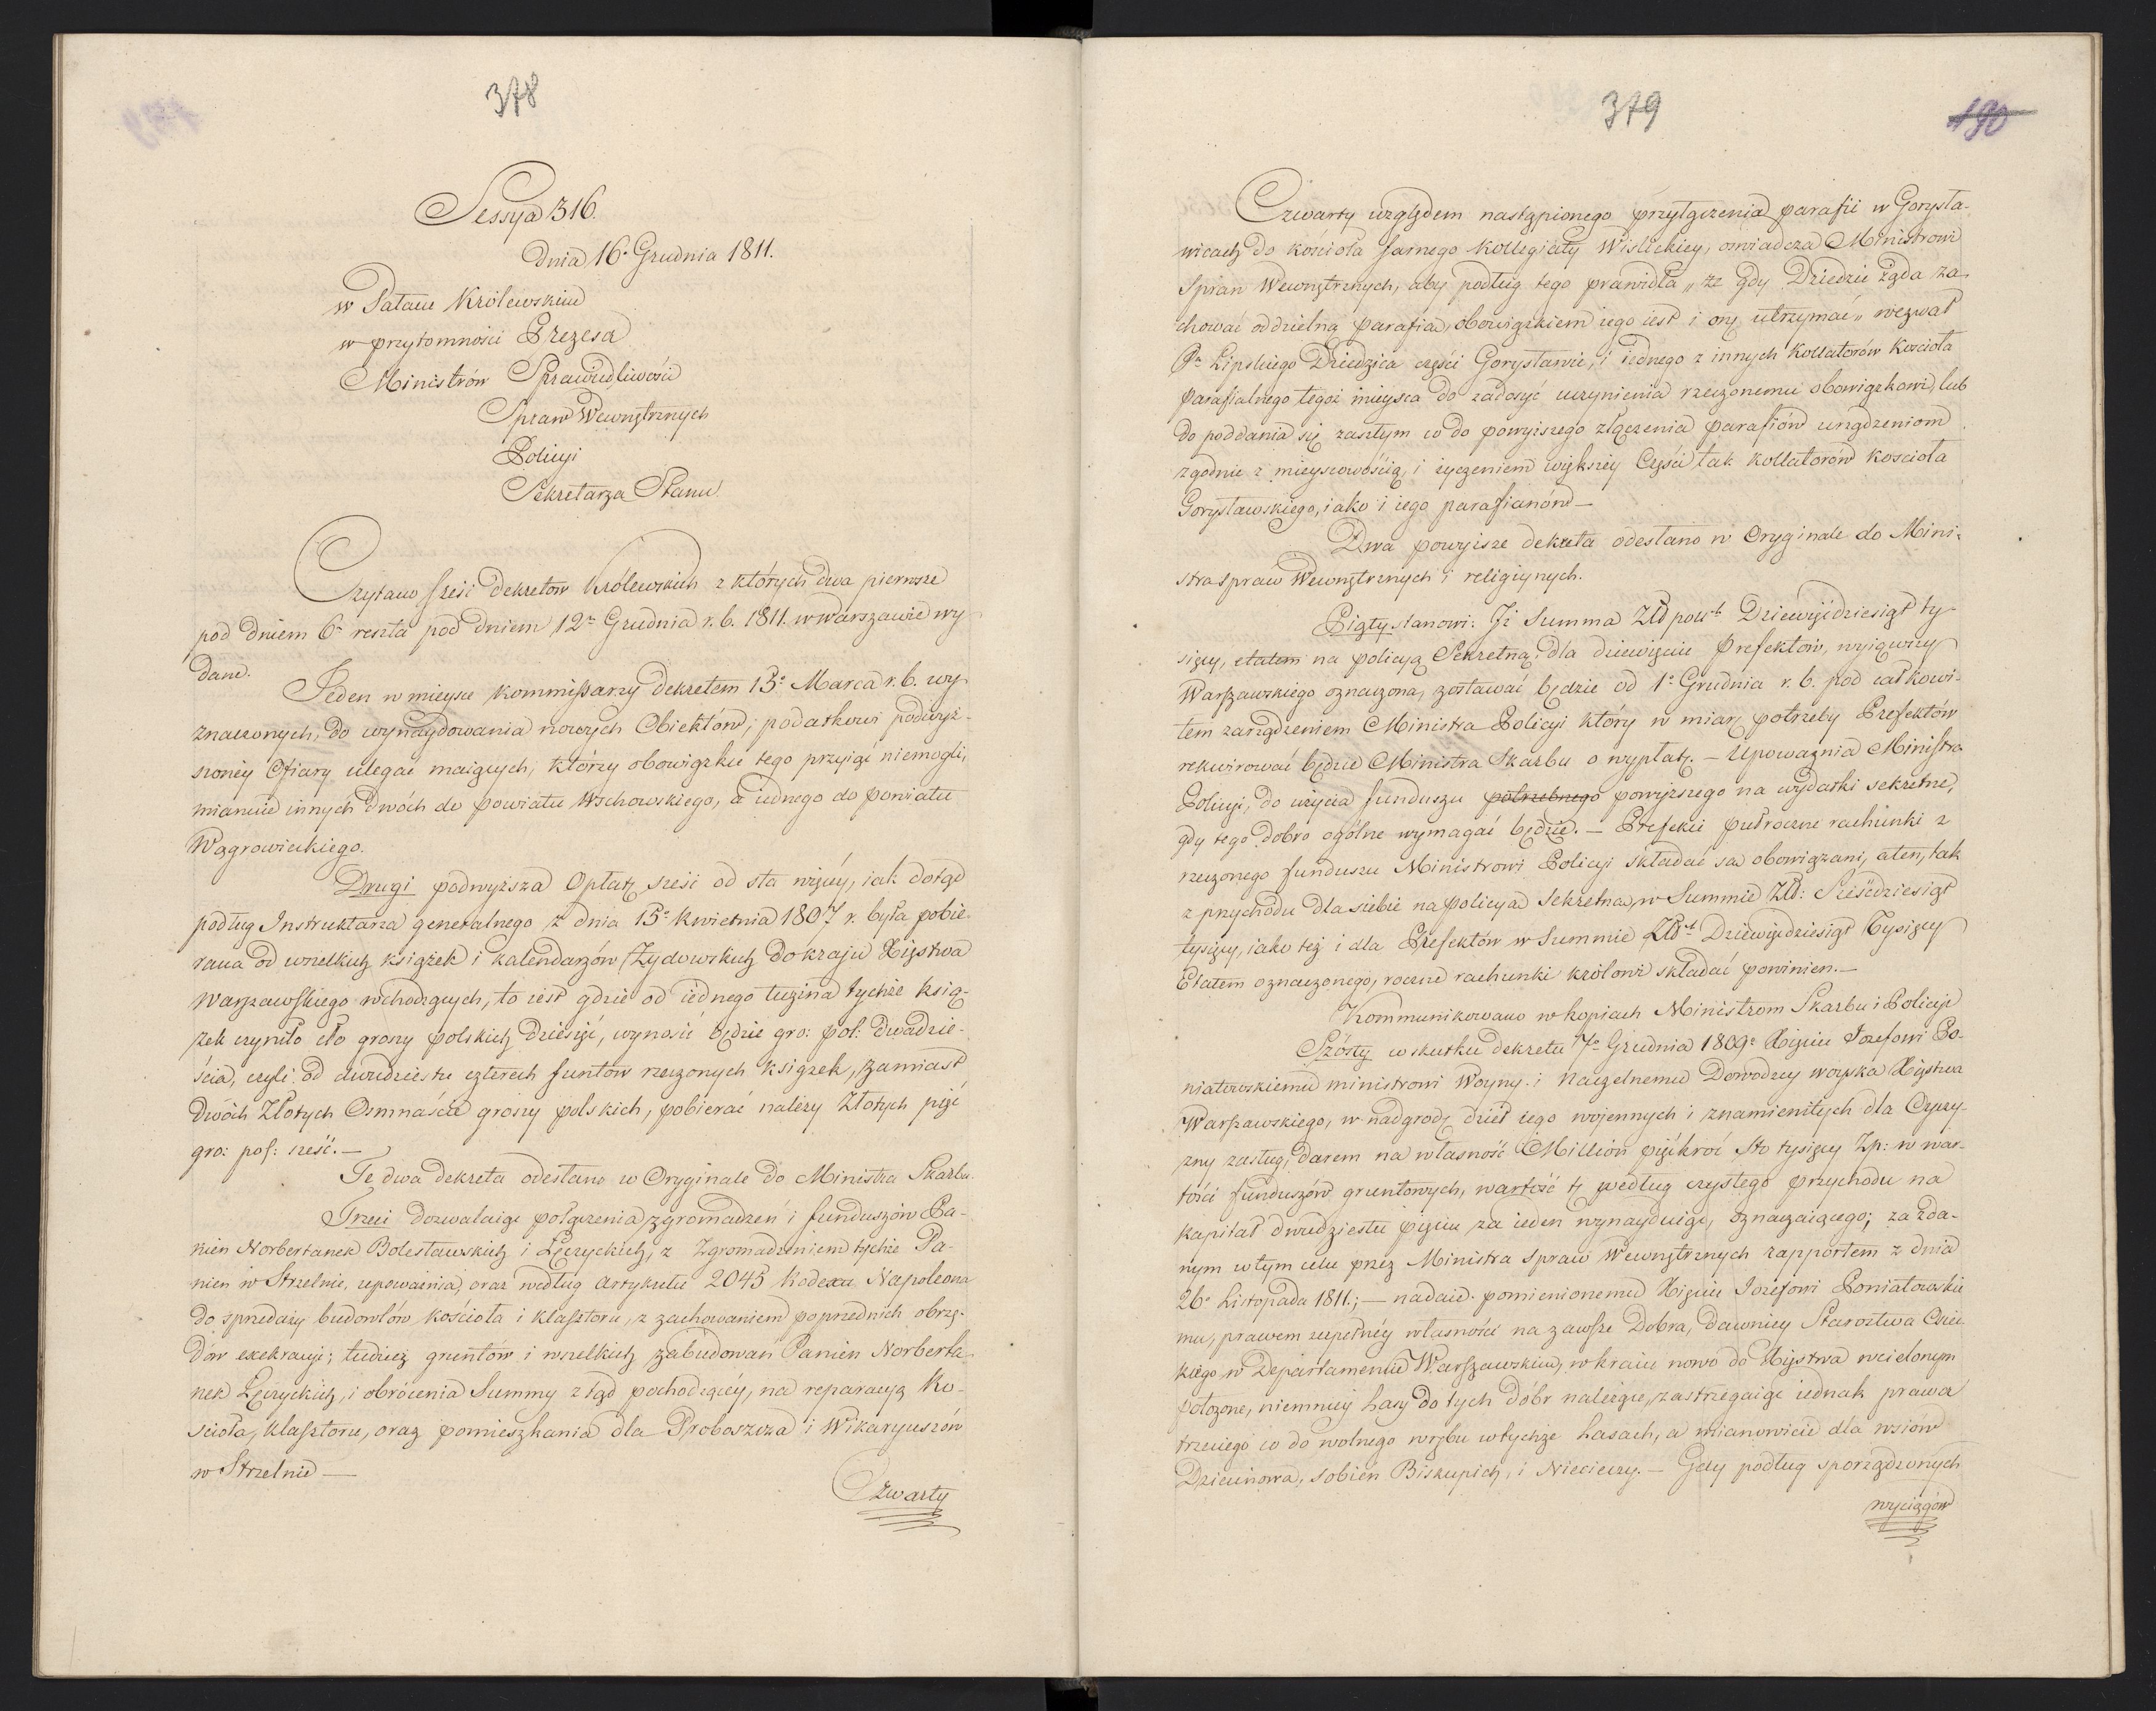 378
Sessya 316.
Dnia 16º Grudnia 1811.
w Pałacu Królewskim
w przytomności Prezesa
Ministrów Sprawiedliwości
Spraw Wewnętrznych
Policyi
Sekretarza Stanu
Czytano sześć Dekretów Królewskich z których dwa pierwsze
pod dniem 6º reszta pod dniem 12º Grudnia r. b. 1811. w Warszawie wy-
dane.
Jeden w mieysce Kommissarzy Dekretem 13º Marca r. b. wy-
znaczonych, do wynaydowania nowych Obiektów, podatkowi podwyż-
szoney Ofiary ulegać maiących, którzy obowiązku tego przyiąć niemogli,
mianuie innych dwóch do powiatu Wschowskiego, a iednego do powiatu
Wągrowieckiego.
Drugi podwyższa Opłatę sześć od sta więcéy, iak dotąd
podług Instruktarza generalnego z dnia 15º Kwietnia 1807 r. była pobie-
rana od wszelkich książek i kalendarzów Żydowskich do kraju Xięstwa
Warszawskiego wchodzących, to iest gdzie od iednego tuzina tychże ksią-
żek czyniło cło groszy polskich dziesięć, wynosić będzie gro: pol: dwadzie-
ścia, czyli od dwudziestu czterech funtów rzeczonych książek, zamiast
dwóch Złotych Osmnaście groszy polskich, pobierać należy Złotych pięć
gro: pol: sześć. —
Te dwa dekreta odesłano w Oryginale do Ministra Skarbu.
Trzeci dozwalaiąc połączenia zgromadzeń i funduszów Pa-
nien Norbertanek Bolesławskich i Łęczyckich, z Zgromadzeniem tychże Pa-
nien w Strzelnie, upoważnia, oraz według artykułu 2045 Kodexu Napoleona
do sprzedaży budowlów kościoła i klasztoru, z zachowaniem poprzednich obrzę-
dów exekracyi; tudzież gruntów i wszelkich zabudowań Panien Norberta-
nek Łęczyckich, i obrócenia Summy ztąd pochodzącéy, na reparacyą Ko-
ścioła, klasztoru, oraz pomieszkania dla Proboszcza i Wikaryuszów
w Strzelnie —
Czwarty
379
190
Czwarty względem nastąpionego przyłączenia parafii w Gorysła-
wicach do kościoła farnego Kollegiaty Wislickiey, oswiadcza Ministrowi
Spraw Wewnętrznych, aby podług tego prawidła „że gdy Dziedzic żąda za-
chować oddzielną parafią, obowiązkiem iego iest i onę utrzymać„ wezwał
Pa Lipskiego Dziedzica części Gorysławic, i iednego z innych Kollatorów Kościoła
Parafialnego tegoż mieysca do zadosyć uczynienia rzeczonemu obowiązkowi, lub
do poddania się zaszłym co do powyższego złączenia parafiów urządzeniom
zgodnie z mieyscowością, i życzeniem większey Części tak Kollatorów Kościoła
Gorysławskiego, iako i iego parafianów —
Dwa powyższe dekreta odesłano w Oryginale do Mini-
stra spraw Wewnętrznych i religiynych.
Piąty stanowi: Iż Summa Złł pols. Dziewięćdziesiąt ty-
sięcy, etatem na policyą Sekretną, dla dziewięciu Prefektów, wyiąwszy
Warszawskiego oznaczona, zostawać będzie od 1º Grudnia r. b. pod całkowi-
tem zarządzeniem Ministra Policyi który w miarę potrzeby Prefektów
rekwirować będzie Ministra Skarbu o wypłatę. — Upoważnia Ministra
Policyi, do użycia funduszu potrzebnego powyższego na wydatki sekretne,
gdy tego dobro ogólne wymagać będzie. — Prefekci półroczne rachunki z
rzeczonego funduszu Ministrowi Policyi składać są obowiązani, a ten, tak
z przychodu dla siebie na policyą Sekretną, w Summie Złł: Sześćdziesiąt
tysięcy, iako też i dla Prefektów w Summie Złł Dziewięćdziesiąt Tysięcy
Etatem oznaczonego, roczne rachunki królowi składać powinien. —
Kommunikowano w kopiach Ministrom Skarbu i Policyi
Szósty w skutku dekretu 7º Grudnia 1809º Xięciu Józefowi Po-
niatowskiemu ministrowi Woyny i Naczelnemu Dowodzcy woyska Xięstwa
Warszawskiego, w nadgrodę dzieł iego woiennych i znamienitych dla Oyczy-
zny zasług, darem na własność Million pięćkroć Sto tysięcy Zp: w war-
tości funduszów gruntowych, wartość tę według czystego przychodu na
kapitał dwudziestu pięciu za ieden wynayduiąc, oznaczaiącego; za zda-
nym w tym celu przez Ministra Spraw Wewnętrznych rapportem z dnia
26º Listopada 1811.; — nadaie pomienionemu Xięciu Józefowi Poniatowskie-
mu, prawem zupełnéy własności na zawsze Dobra, dawniey Starostwa
kiego w Departamencie Warszawskim, w kraiu nowo do Xięstwa wcielonym
położone, niemniey Lasy do tych dóbr należące, zastrzegaiąc iednak prawa
trzeciego co do wolnego wrębu w tychże Lasach, a mianowicie dla wsiów
Dziecinowa, Sobień Biskupich, i Niecieczy. — Gdy podług sporządzonych
wyciągów